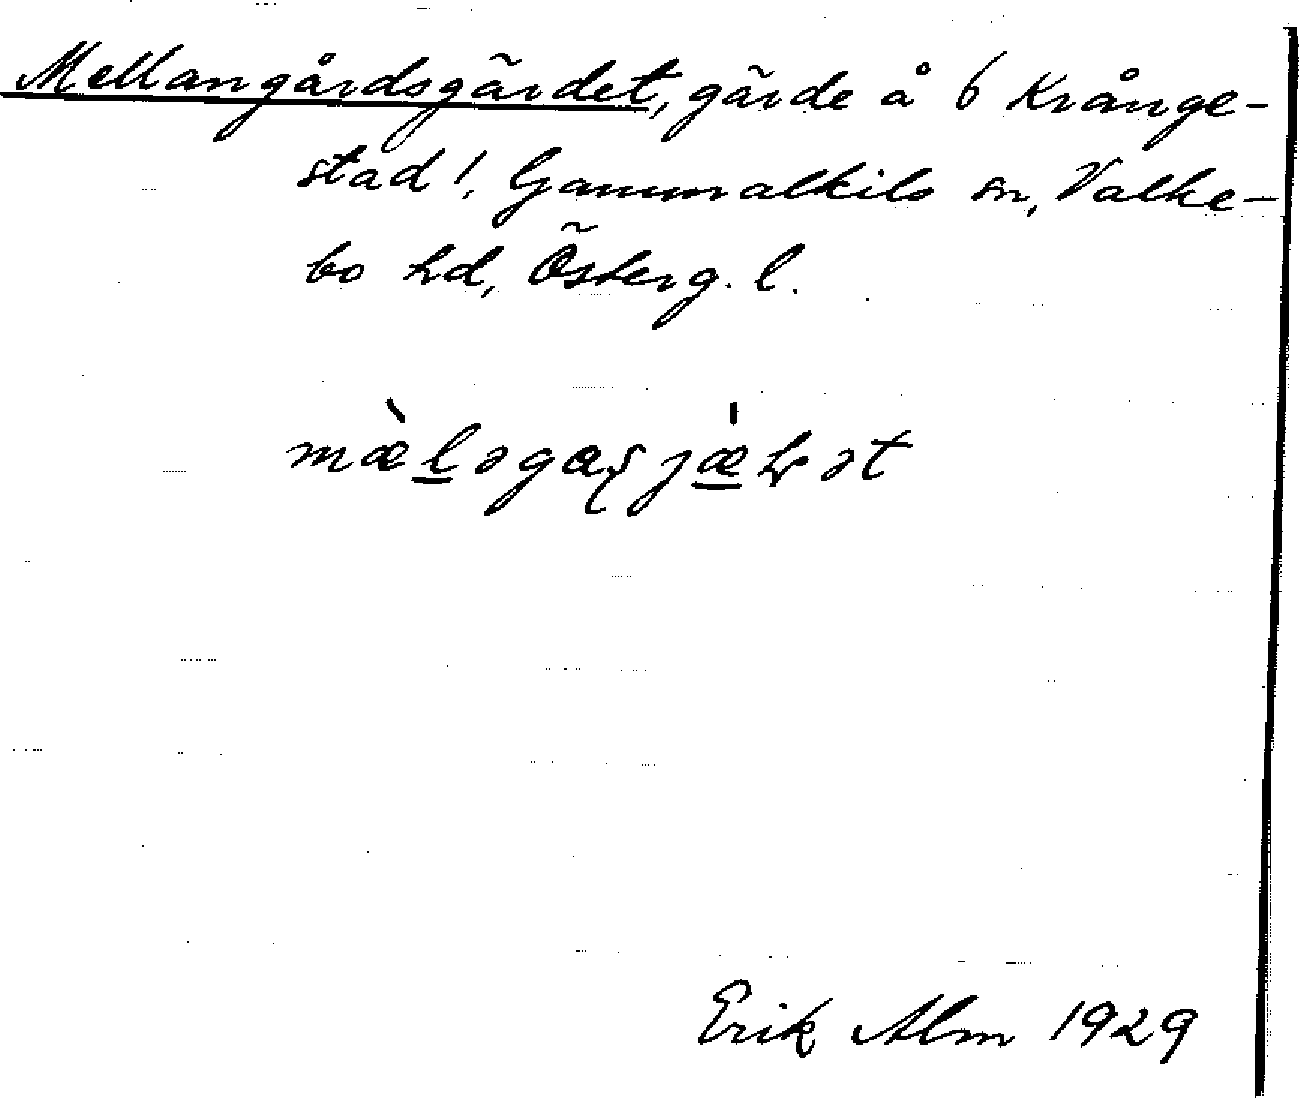 Mellangårdsgärdet, gärde å 6 Krånge-
stad!, Gammalkils sn, Valke-
bo hd, Österg. l.
Erik Alm 1929